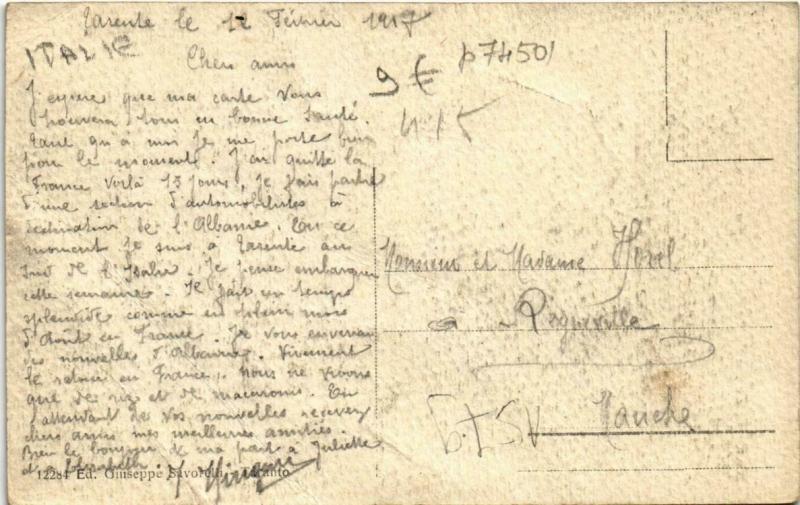 Tarente le 12 Février 1917
ITALIE
Chers amis
9 €
p74501
J'espère que ma carte vous
trouvera tous en bonne santé.
Tant qu'à moi je me porte bien
pour le moment. J'ai quitté la
France voilà 15 jours, je fais partie
d'une section d'automobilistes à
destination de l'Albanie. En ce
moment je suis à Tarente au
Sud de l'Italie. Je pense embarquer
cette semaine. Il fait un temps
splendide comme en plein mois
d'Août en France. Je vous enverrai
des nouvelles d'Albanie. Vivement
le retour en France, nous ne vivons
que des riz et de macaronis. En
attendant de vos nouvelles recevez
chers amis mes meilleures amitiés.
Bien le bonjour de ma part à Juliette
et à Elisabeth.
12284 Ed. Giuseppe Savorelli - Taranto
Monsieur et Madame
à
Manche